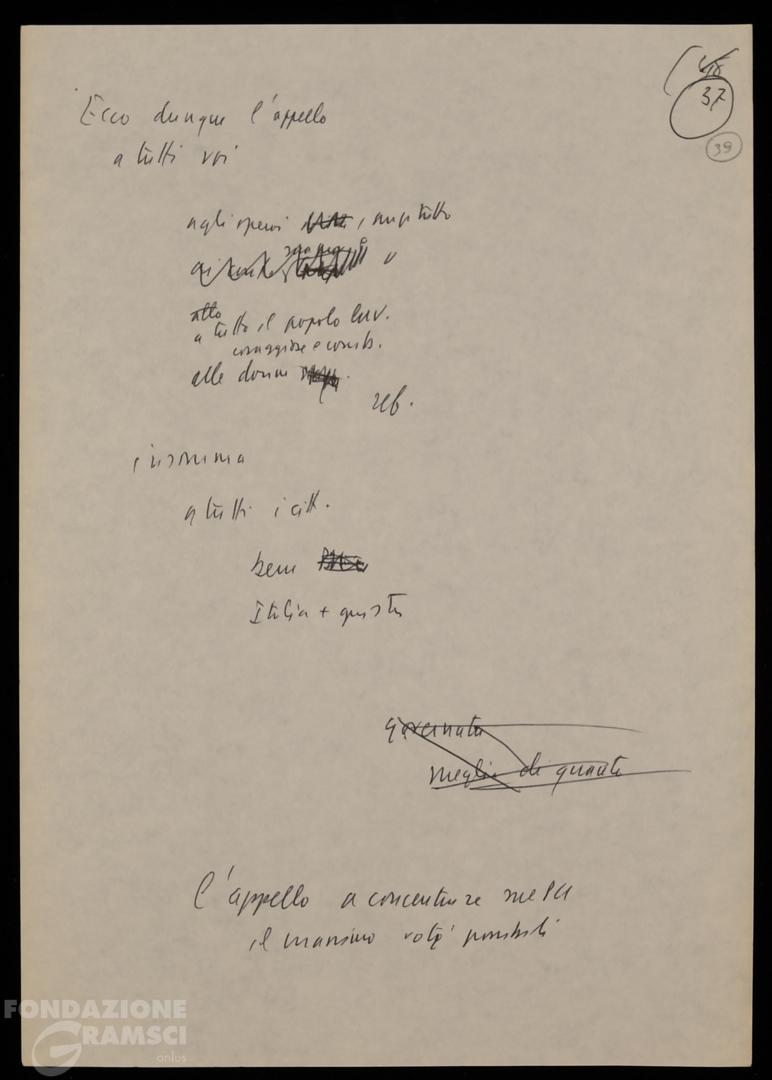 37
39
Ecco dunque l'appello
a tutti voi
agli operai , anzitutto
alla
a tutto il popolo lav.
coraggiose e comb.
alle donne
ref.
insomma
a tutti i citt.
bene
Italia + giusta
governata
meglio di
l'appello a concentrare sul PCI
il massimo voti possibili
FONDAZIONE
GRAMSCI
onlus